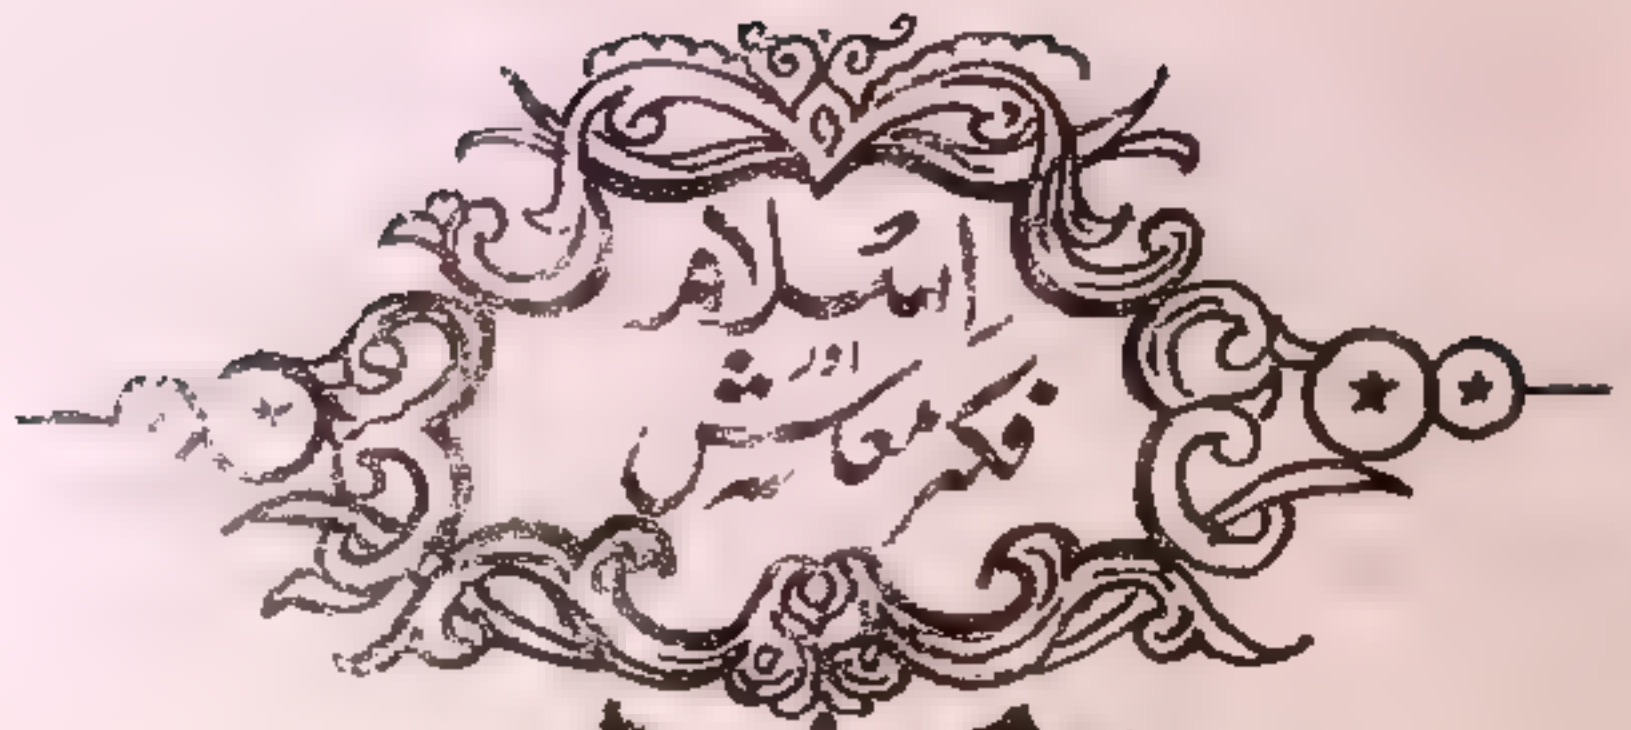 اسلام
اور
فکر معاش